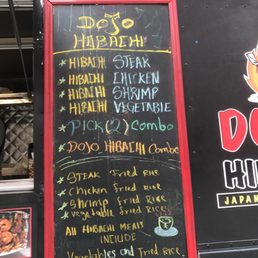 DOJO
HIBACHI
HIBACHI STEAK
HIBACHI CHICKEN
HIBACHI SHRIMP
HIBACHI VEGETABLE
PICK (2) Combo
DOJO HIBACHI Combo
STEAK Fried Rice
Chicken Fried Rice
Shrimp Fried Rice
Vegetable Fried Rice
All HIBACHI MEALS
INCLUDE
Vegetables and Fried Rice
DO
HI
JAPAN